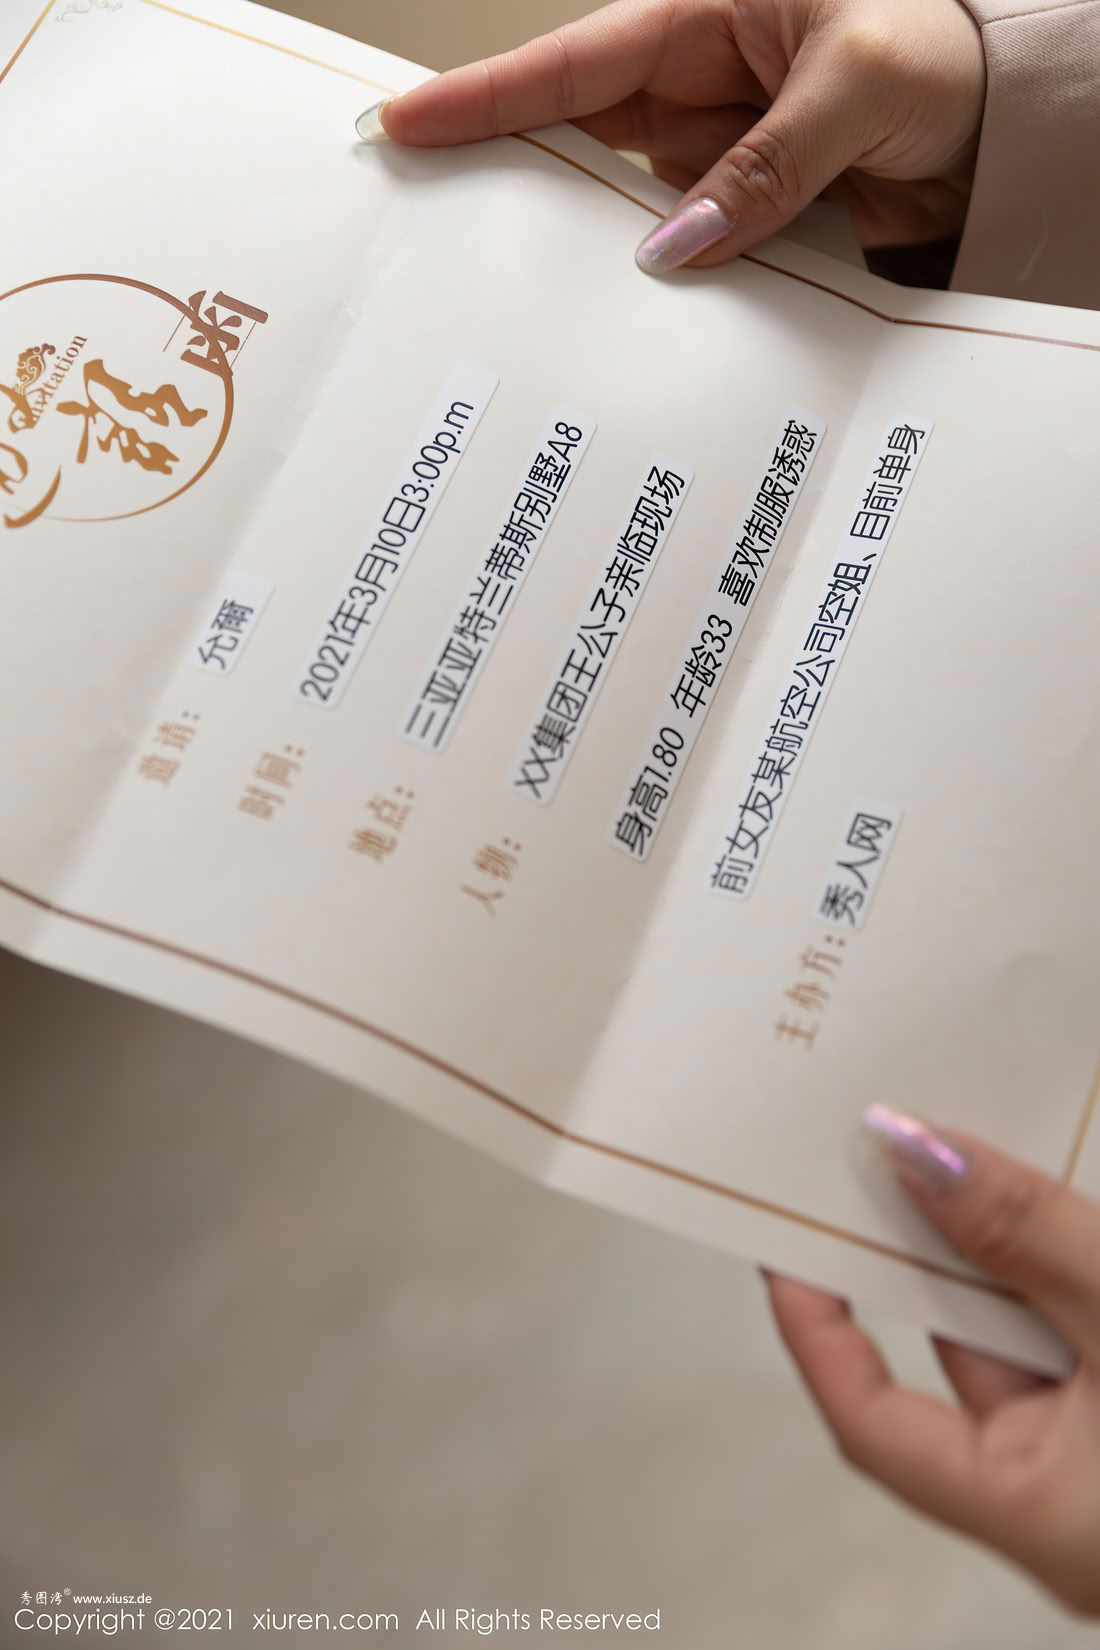 邀请函
Invitation
邀请：允爾
时间：2021年3月10日3:00p.m
地点：三亚亚特兰蒂斯别墅A8
人物：XX集团王公子亲临现场
身高1.80 年龄33 喜欢制服诱惑
前女友某航空公司空姐、目前单身
主办方：秀人网
秀图湾® www.xiusz.de
Copyright @2021 xiuren.com All Rights Reserved